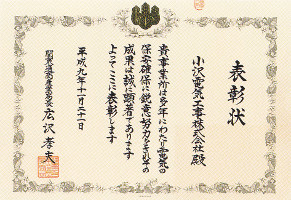 表彰状
小沢電気工事株式会社殿
貴事業所は多年にわたり電気の
保安確保に鋭意努力されその
成果は誠に顕著であります
よってここに表彰します
平成九年十一月二十一日
広沢孝夫